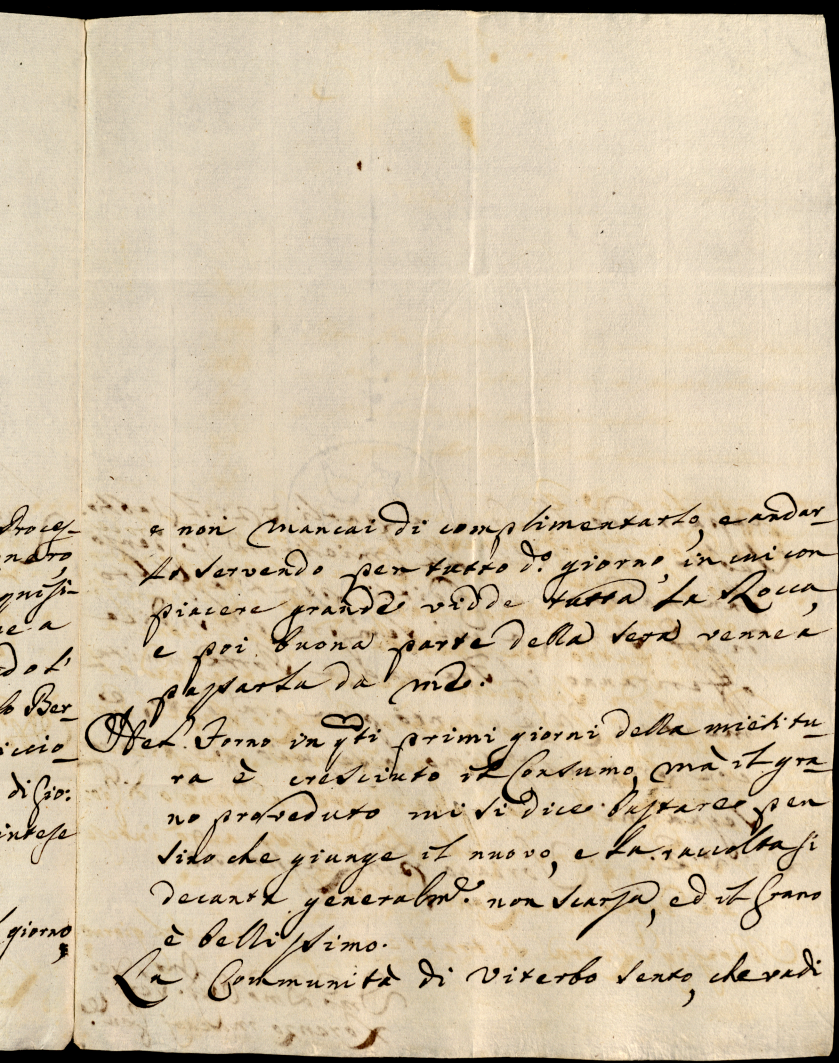 Proces-
naro
gnissi-
e a
do l'
lo Ber-
iccio-
di Gio:
intese
giorno,
e non mancai di complimentarlo, e andar-
lo servendo per tutto d.º giorno, in cui con
piacere grande vidde tutta la Rocca,
e poi buona parte della sera venne à
passarla da me.
Nel Forno in q̃ti primi giorni della mietitu-
ra è cresciuto il Consumo, mà il gra-
no proveduto mi si dice bastare per
sino che giunge il nuovo, e la raccolta si
decanta generalm.e non scarsa, ed il Grano
è bellissimo.
La Communità di Viterbo sento, che vadi